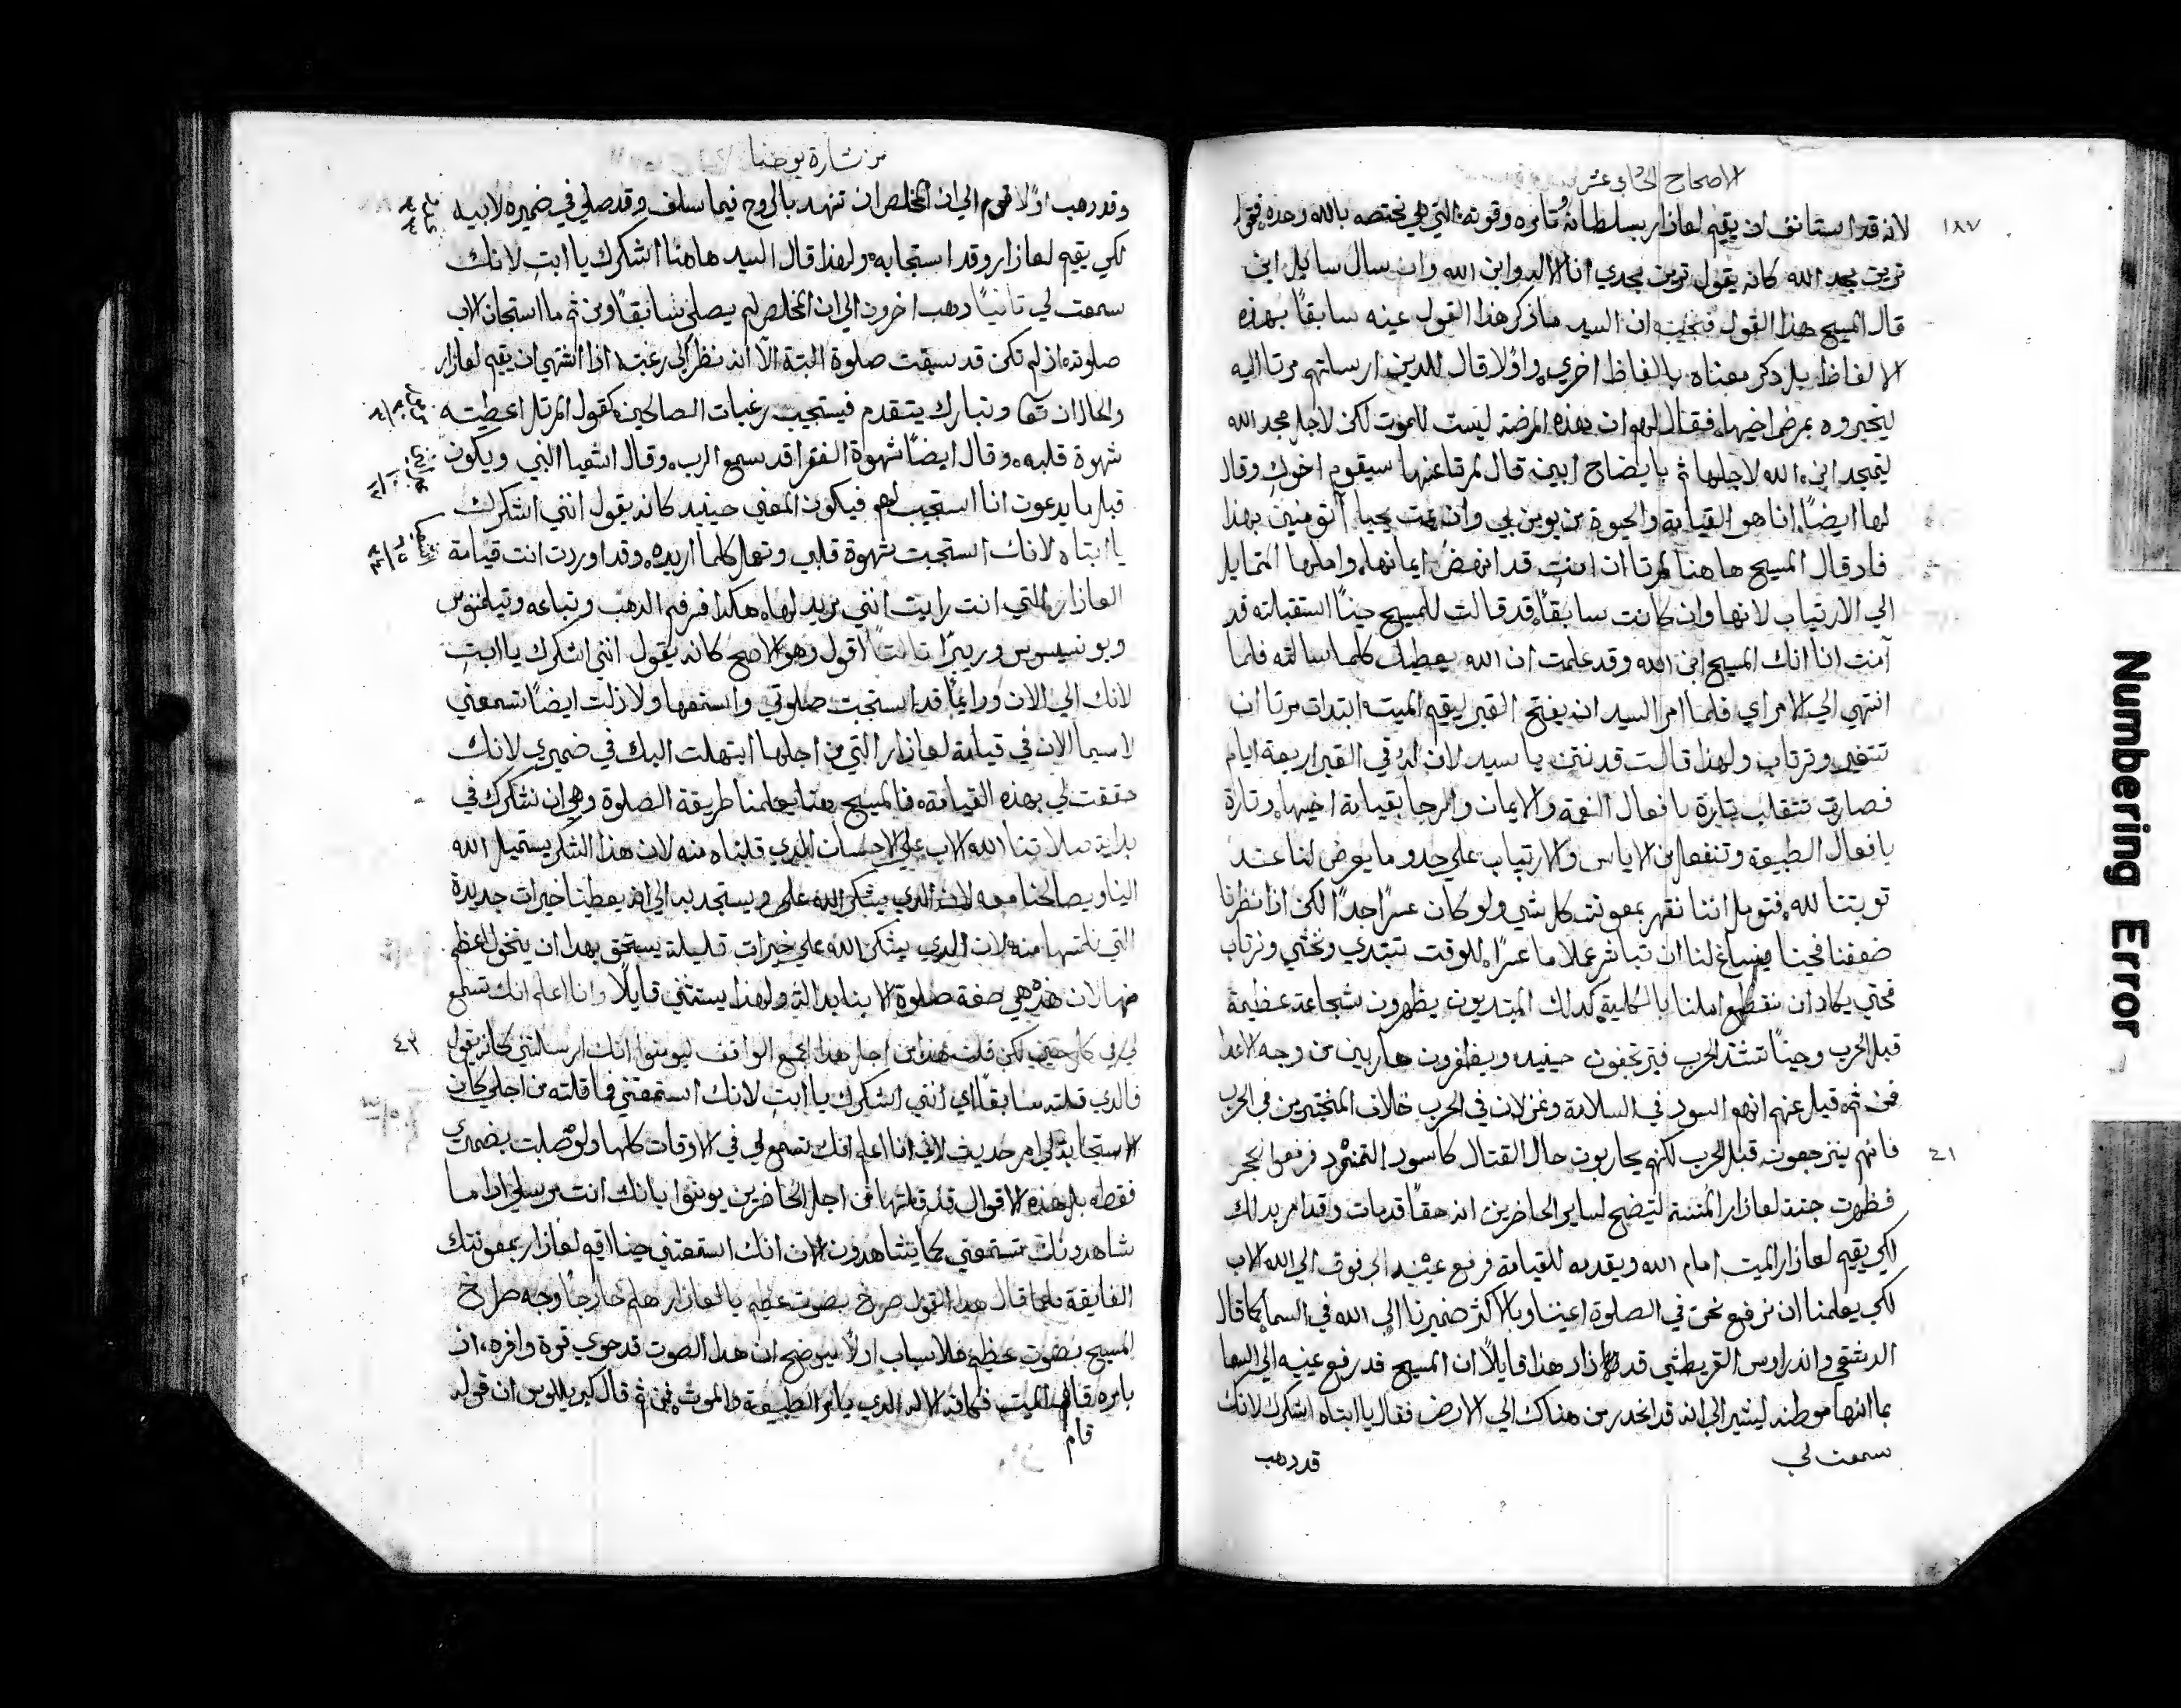 الاصحاح الحادي عشر
١٨٧
لانه قد استانف ان يقيم لعازار بسلطانه وتامره وقوته التي هي مختصه بالله وحده فقوله
ترين مجد الله كانه يقول ترين مجدي انا الاله وابن الله وان سال سايل اين
قال المسيح هذا القول فنجيبه ان السيد ما ذكر هذا القول عينه سابقاً بهذه
الالفاظ بل ذكر معناه بالفاظ اخري واولا قال للدين ارسلتهم مرتا اليه
ليخبروه بمرض اخيها فقال لهم ان هذه المرضه ليست للموت لكن لاجل مجد الله
ليتمجد ابن الله لاجلها ثم بايضاح ابين قال لمرتا عنها سيقوم اخوك وقال
لها ايضاً انا هو القيامة والحيوة من يومن بي وان مت يحيا اتومنين بهذا
فاد قال المسيح هاهنا لمرتا ان امنت قد انهض ايمانها واملها المتمايل
الي الارتياب لانها وان كانت سابقاً قد قالت للمسيح حيناً استقبلته قد
آمنت انا انك المسيح ابن الله وقد علمت ان الله يعطيك كلما سالته فلما
انتهي الي الامر اي فلما امر السيد ان يفتح القبر ليقيم الميت ابتدات مرتا ان
تتغير وترتاب ولهذا قالت قد نتن يا سيد لان له في القبر اربعة ايام
فصارت تتقلب تارة بافعال النعمة والايمان والرجا بقيامة اخيها وتارة
بافعال الطبيعة وتنفعل من الاياس والارتياب علي حدو ما يعرض لنا عند
توبتنا لله فنومل اننا نقهر بمعونته كل شي ولو كان عسراً جداً لكن اذا نظرنا
ضعفنا فحينا ينساغ لنا ان نباشر عملا ما عسراً للوقت نبتدي ونخشي ونرتاب
فحتي يكاد ان ينقطع املنا بالكلية كدلك المبتديون يظهرون شجاعة عظيمة
قبل الحرب وحيناً تشتد الحرب فيرتجفون حينيد ويظفرون هاربين من وجه الاعدا
فمن ثم قيل عنهم انهم اسود في السلامة وغزلان في الحرب خلاف المختبرين في الحرب
٤١
فانهم ينزعجون قبل الحرب لكنهم يحاربون حال القتال كاسود التمنورد فرفعوا الحجر
فظهرت جتة لعازار المنتنة لتيضح لساير الحاضرين انه حقاً قد مات وقد امر بدلك
لكي يقيم لعازار الميت امام الله ويقدمه للقيامة فرفع عينيه الي فوق الي الله الاب
لكي يعلمنا ان نرفع نحن في الصلوة اعيننا وبالاكثر ضميرنا الي الله في السما كما قال
الدمشقي واندراوس القريطشي قد زاد هذا قايلاً ان المسيح قد رفع عينيه الي السما
بما انها موطنه ليشير الي انه قد انحدر من هناك الي الارض فقال يا ابتاه اشكرك لانك
سمعت لي
قد دهب
من بشارة يوحنا
وقد دهب اولاً قوم الي ان المخلص ان تنهد بالروح فيما سلف وقد صلي في ضميره لابيه
لكي يقيم لعازار وقد استجابه ولهذا قال السيد هاهنا اشكرك يا ابت لانك
سمعت لي تانياً دهب اخرون الي ان المخلص لم يصلي سابقاً ومن ثم ما استجاب الاب
صلوته اذ لم تكن قد سبقت صلوة البتة الا انه نظر الي رغبته اذا اشتهي ان يقيم لعازار
والحال ان تعا وتبارك يتقدم فيستجيب رغبات الصالحين كقول المرتل اعطيته
شهوة قلبه وقال ايضاً شهوة الفقرا قد سمع الرب وقال اشعيا النبي ويكون
قبل ما يدعون انا استجيب لهم فيكون المعني حينيد كانه يقول انني اشكرك
يا ابتاه لانك استجبت شهوة قلبي وتعمل كلما اريده وقد اوردت انت قيامة
العازار التي انت رايت انني مريد لها هكدا فم الدهب وتباعه
لانك الي الان ودايماً قد استجبت صلوتي واستمعها ولازلت ايضاً تسمعني
لاسيما الان في قيامة لعازار التي من اجلها ابتهلت اليك في ضميري لانك
حققت لي بهذه القيامة فالمسيح هنا يعلمنا طريقة الصلوة وهي ان نشكرك في
بداية صلاتنا الله الاب علي الاحسان الدي قلناه منه لان هذا الشكر يستميل الله
الينا ويصالحنا معه لان الدي يشكر الله علي ويستجد به الي ان يعطينا خيرات جديدة
التي نلتمسها منه لان الدي يشكر الله علي خيرات قليلة يستحق بهدا ان ينحول اعظم
منها لان هذه هي صفة صلوة الابنا ولهذا يستثني قايلاً وانا اعلم انك تسمع
٤٢
لي في كل حين لكن قلت هذا من اجل هدا الجمع الواقف ليومنوا انك ارسلتني كانه يقول
فالدي قلته سابقاً اي انني اشكرك يا ابت لانك استمعتني فما قلته من اجلي كان
لاني انا اعلم انك تسمع لي في الاوقات كلها ولو صليت بضميري
فقط بل هذه الاقوال قد قلتها من اجل الحاضرين يومنوا بانك انت مرسلي اذا ما
شاهدونك تستمعني كما يشاهدون الان انك استمعتني حينا اقيم لعازار بمعونتك
الفايقة فلما قال هدا القول صرخ بصوت عظيم يا لعازار هلم خارجاً وجه صراخ
المسيح بصوت عظيم فلاسباب اولاً ليوضح ان هدا الصوت قد حوي قوة وافره ان
بامره قام الميت فكانه الاله الدي يامر الطبيعة والموت فمن ثم قال كيريللوس ان قوله
قام